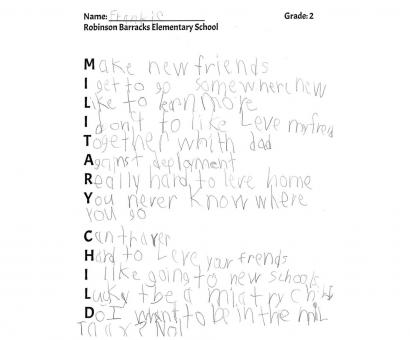 Name: Frankie Grade: 2
Robinson Barracks Elementary School
Make new friends
I get to go somewhere new
Like to lern more
I don't to like Leve my frend
Together whith dad
Against deployment
Really hard to leve home
You never know where
you go
Can
Hard to Leve your frends
I like going to new schools
Lucky t be a child
Do I want to be in the
No!